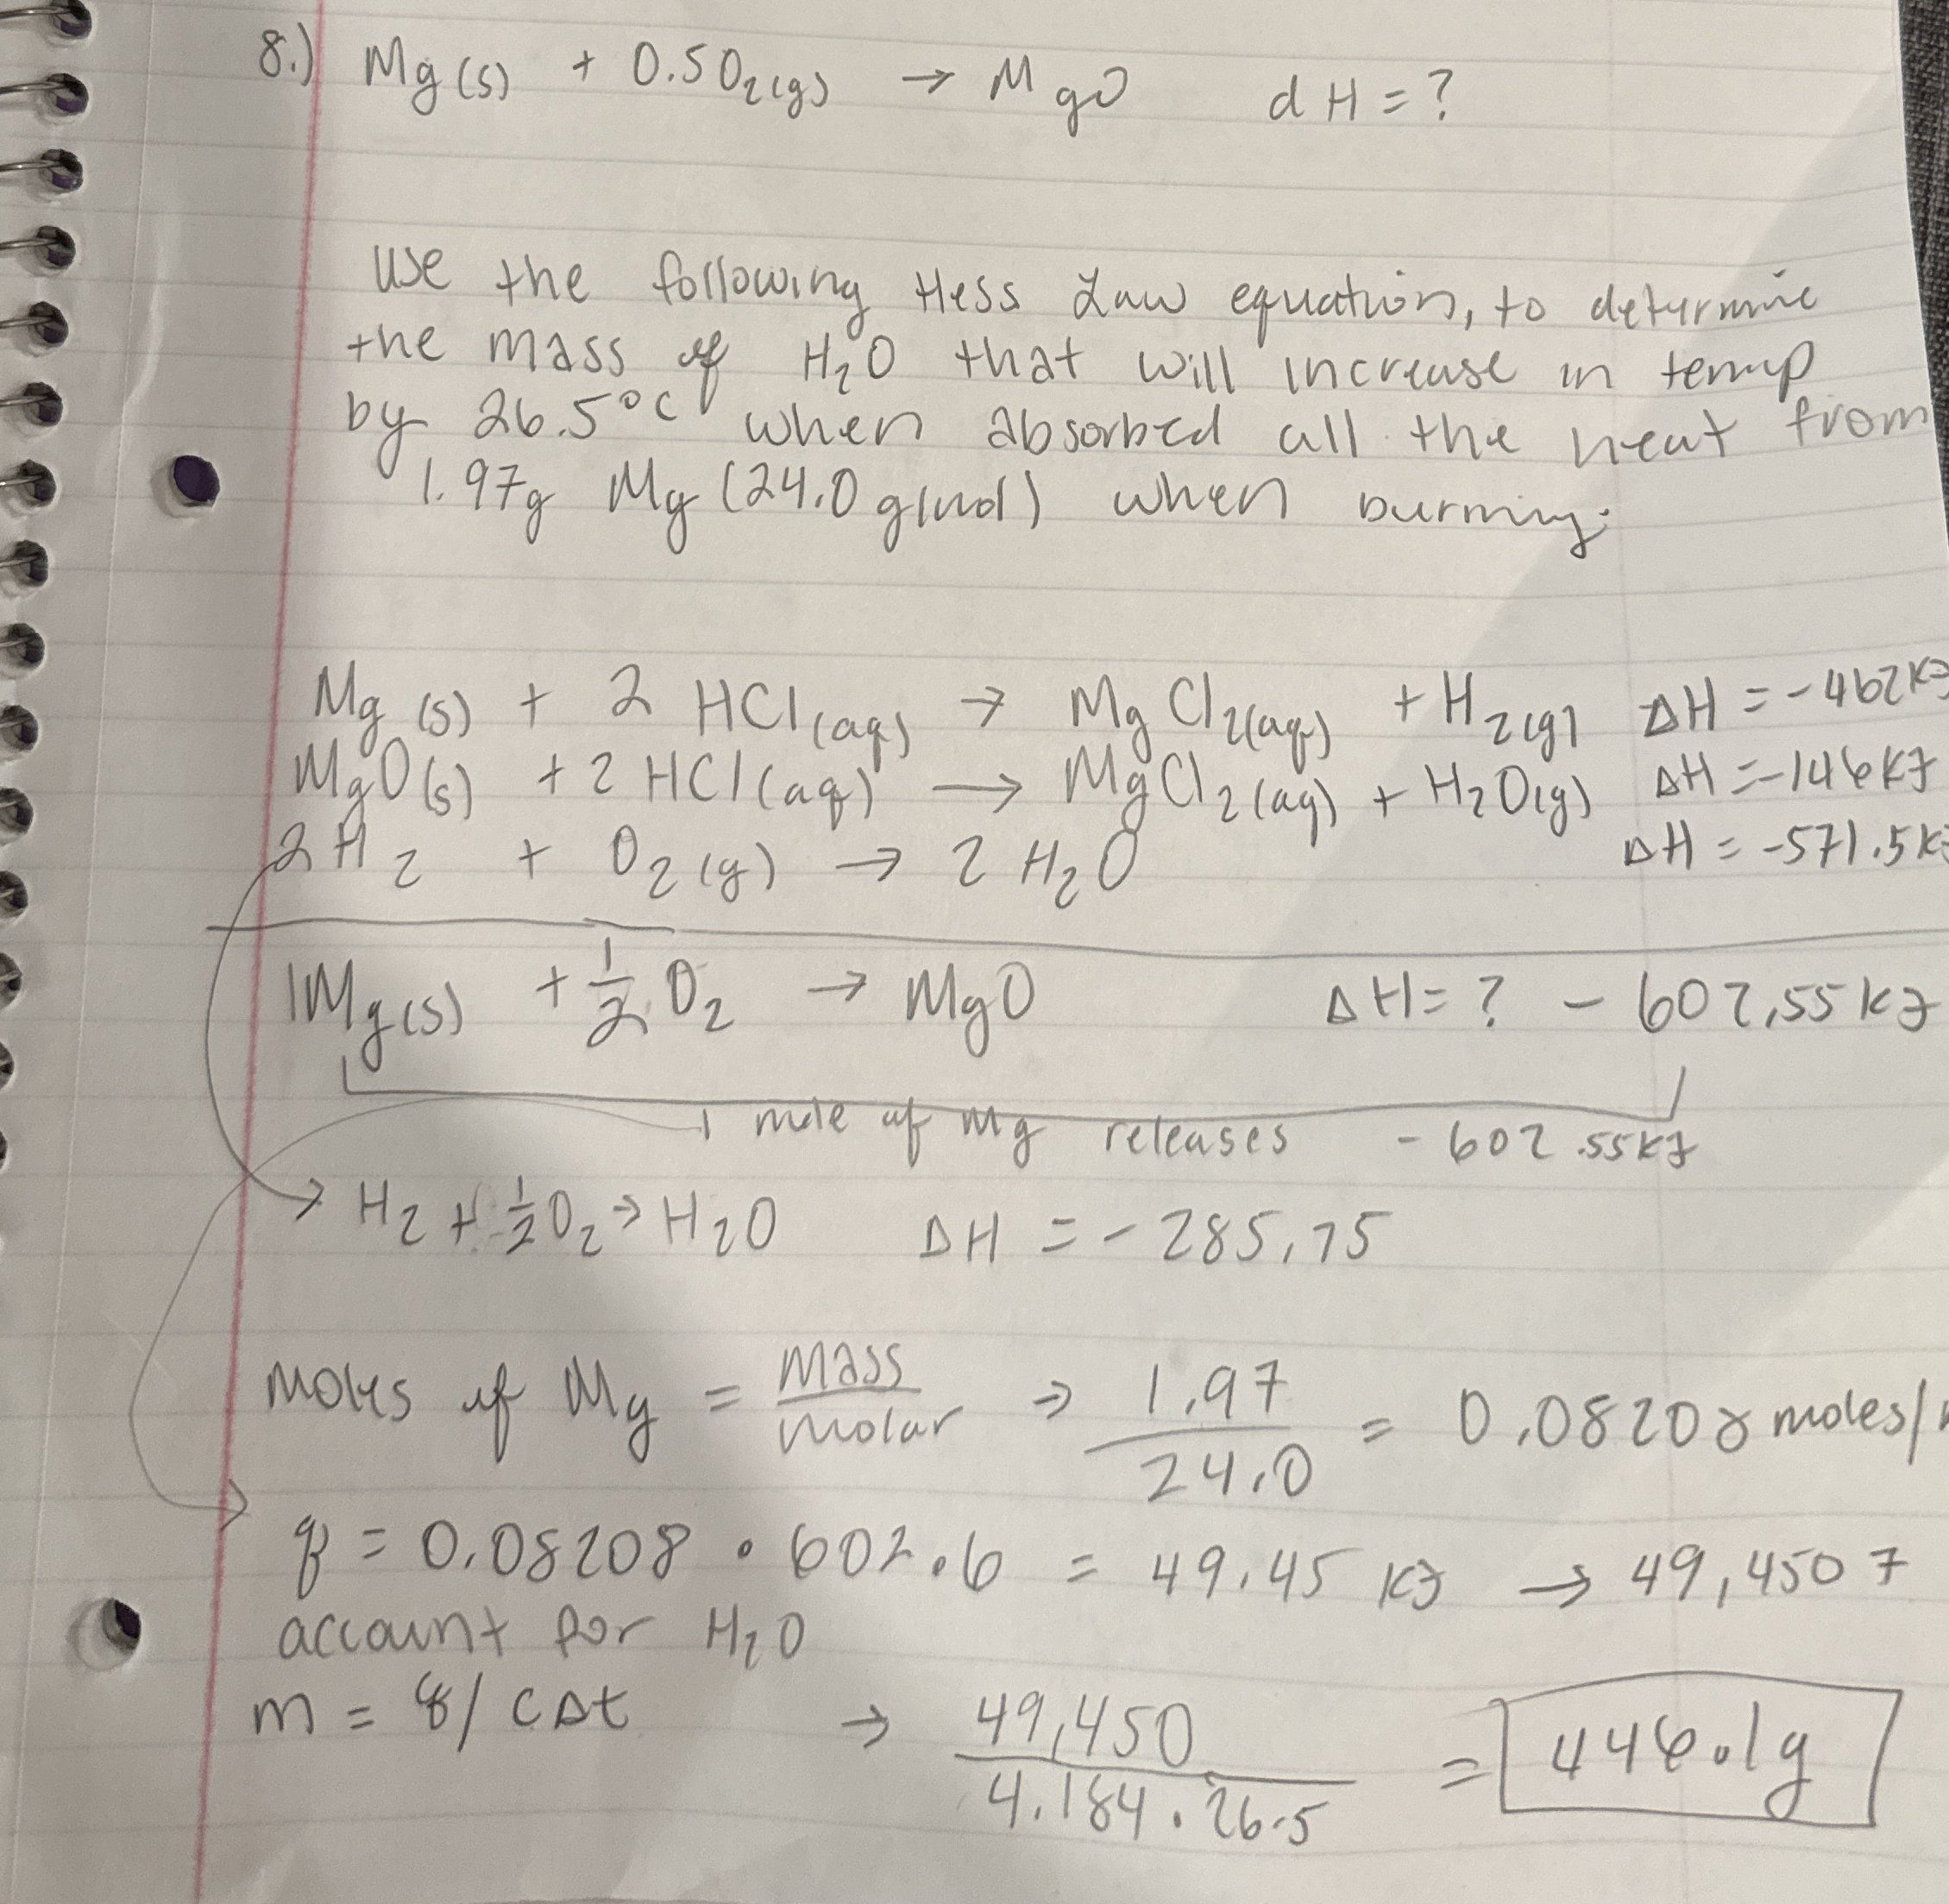 8.) Mg(s) + 0.5O₂(g) → MgO dH = ?
Use the following Hess Law equation, to determine
the mass of H₂O that will increase in temp
by 26.5°C when absorbed all the heat from
1.97g Mg (24.0 g/mol) when burning.
Mg(s) + 2 HCl(aq) → MgCl₂(aq) + H₂(g) ΔH = -462 kJ
MgO(s) + 2 HCl(aq) → MgCl₂(aq) + H₂O(g) ΔH = -146 kJ
2H₂ + O₂(g) → 2 H₂O ΔH = -571.5 kJ
1Mg(s) + ½ O₂ → MgO ΔH = ? - 602.55 kJ
1 mole of Mg releases - 602.55 kJ
→ H₂ + ½O₂ → H₂O ΔH = -285.75
Moles of Mg = mass/molar ⇒ 1.97/24.0 = 0.08208 moles/
q = 0.08208 · 602.6 = 49.45 kJ → 49,450 J
account for H₂O
m = q/cΔt → 49,450/4.184 · 26.5 = 446.1g